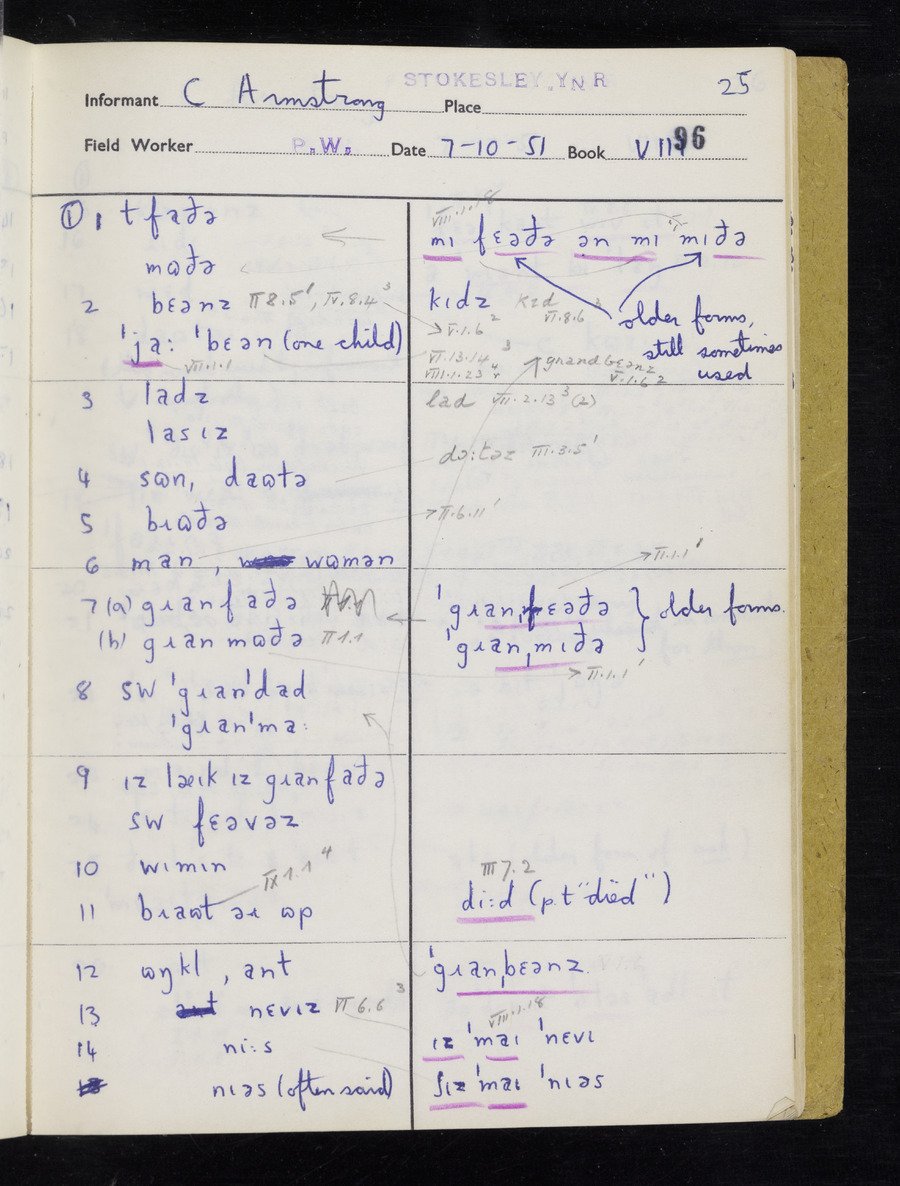 STOKESLEY. Y N R
25
Informant C Armstrong Place
Field Worker P.W. Date 7-10-51 Book VIII 96
① 1 t faðə
mɷðə
2 bɛənz II 8.5¹, IV.8.4³
ˈja: ˈbɛən (one child)
VII.1.1
3 ladz
lasɪz
4 sɷn, daɷtə
5 bɹɷðə
6 man, wɷmən
7 (a) gɹanfaðə
(b) gɹanmɷðə II 1.1
8 SW ˈgɹanˈdad
ˈgɹanˈma:
9 ɪz laɛɪk ɪz gɹanfaðə
SW fɛəvəz
10 wɪmɪn
IX 1.1⁴
11 bɹaɷt əɹ ɷp
12 ɷŋkl, ant
13 nɛvɪz II 6.6³
14 ni:s
nɪəs (often said)
VIII.1.18
mɪ fɛəðə ən mɪ mɪðə
kɪdz kɪd VI.8.6³
older forms, still sometimes used
V.1.6²
VI.13.14³
VIII.1.23⁴
grandbɛənz V.1.6²
lad VII.2.13³(2)
dɔ:təz III.3.5¹
II.6.11¹
II.1.1¹
ˈgɹanˌfɛəðə } older forms.
ˈgɹanˌmɪðə
II.1.1¹
III 7.2
di:d (p.t "died")
ˈgɹanˌbɛənz
VIII.1.18
ɪz ˈmaɪ ˈnɛvɪ
ʃɪz ˈmaɪ ˈnɪəs